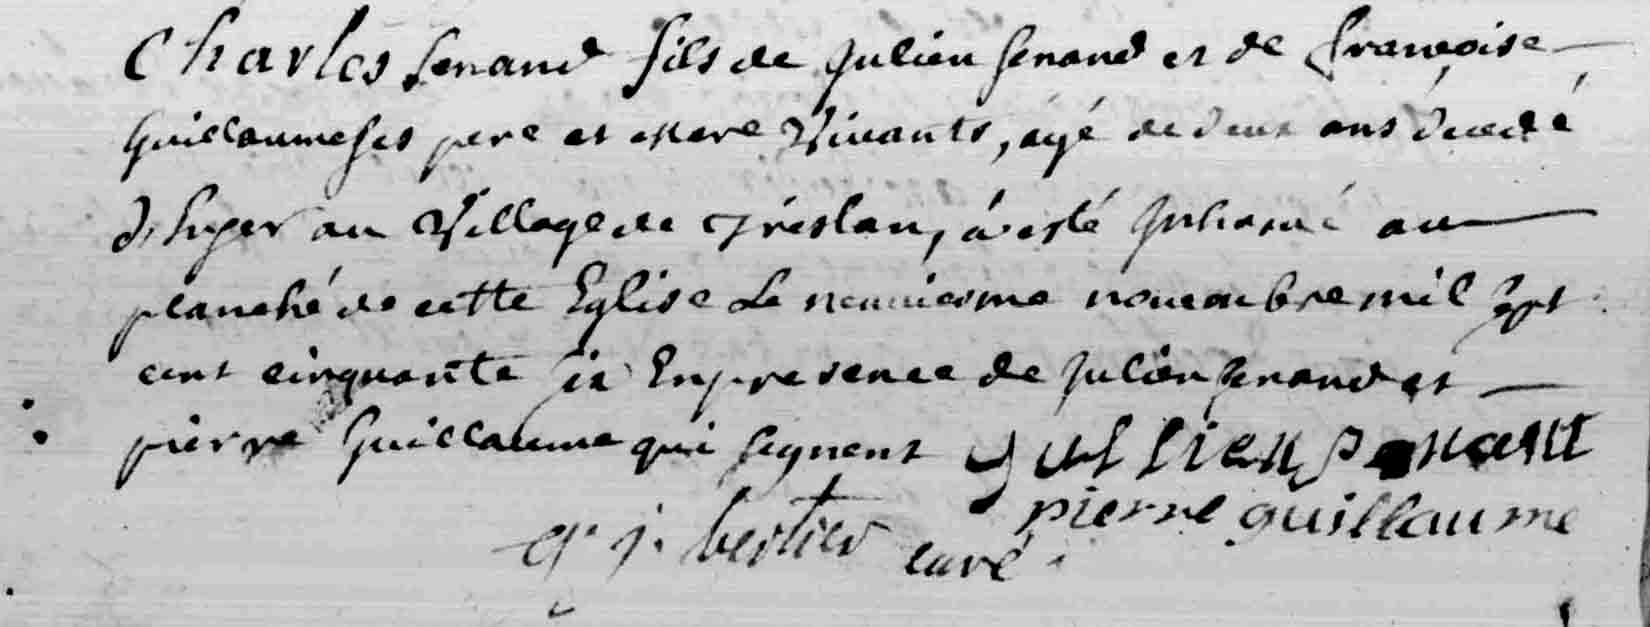 Charles Senand fils de Julien Senand et de françoise
Guillaume ses pere et mere Vivants, agé de deux ans decedé
d'hyer au Village de Treslan, á esté Inhumé au
planché de cette Eglise Le neuuiesme nouembre mil sept
cent cinquante six En presence de Julien Senand et
pierre Guillaume qui signent Jullien Senant
pierre guillaume
g. j. bertier curé